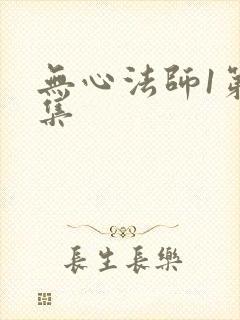 無心法師1第
集
長生長樂